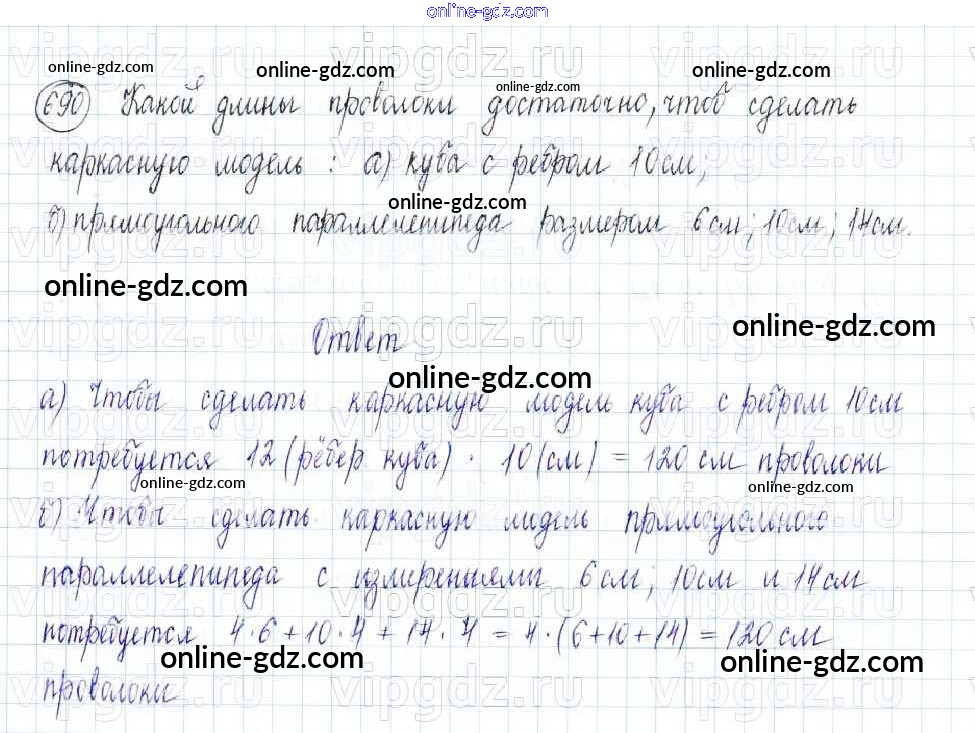 online-gdz.com
online-gdz.com
online-gdz.com
online-gdz.com
online-gdz.com
690 Какой длины проволоки достаточно, чтоб сделать
каркасную модель : а) куба с ребром 10см;
online-gdz.com
б) прямоугольного параллелепипеда размером 6см; 10см; 14см.
online-gdz.com
online-gdz.com
Ответ
online-gdz.com
а) Чтобы сделать каркасную модель куба с ребром 10см
потребуется 12 (рёбер куба) · 10 (см) = 120 см проволоки
online-gdz.com
online-gdz.com
б) Чтобы сделать каркасную модель прямоугольного
параллелепипеда с измерениями 6см; 10см и 14см
потребуется 4·6+10·4+14·4 = 4·(6+10+14) = 120 см
online-gdz.com
online-gdz.com
проволоки
vipgdz.ru